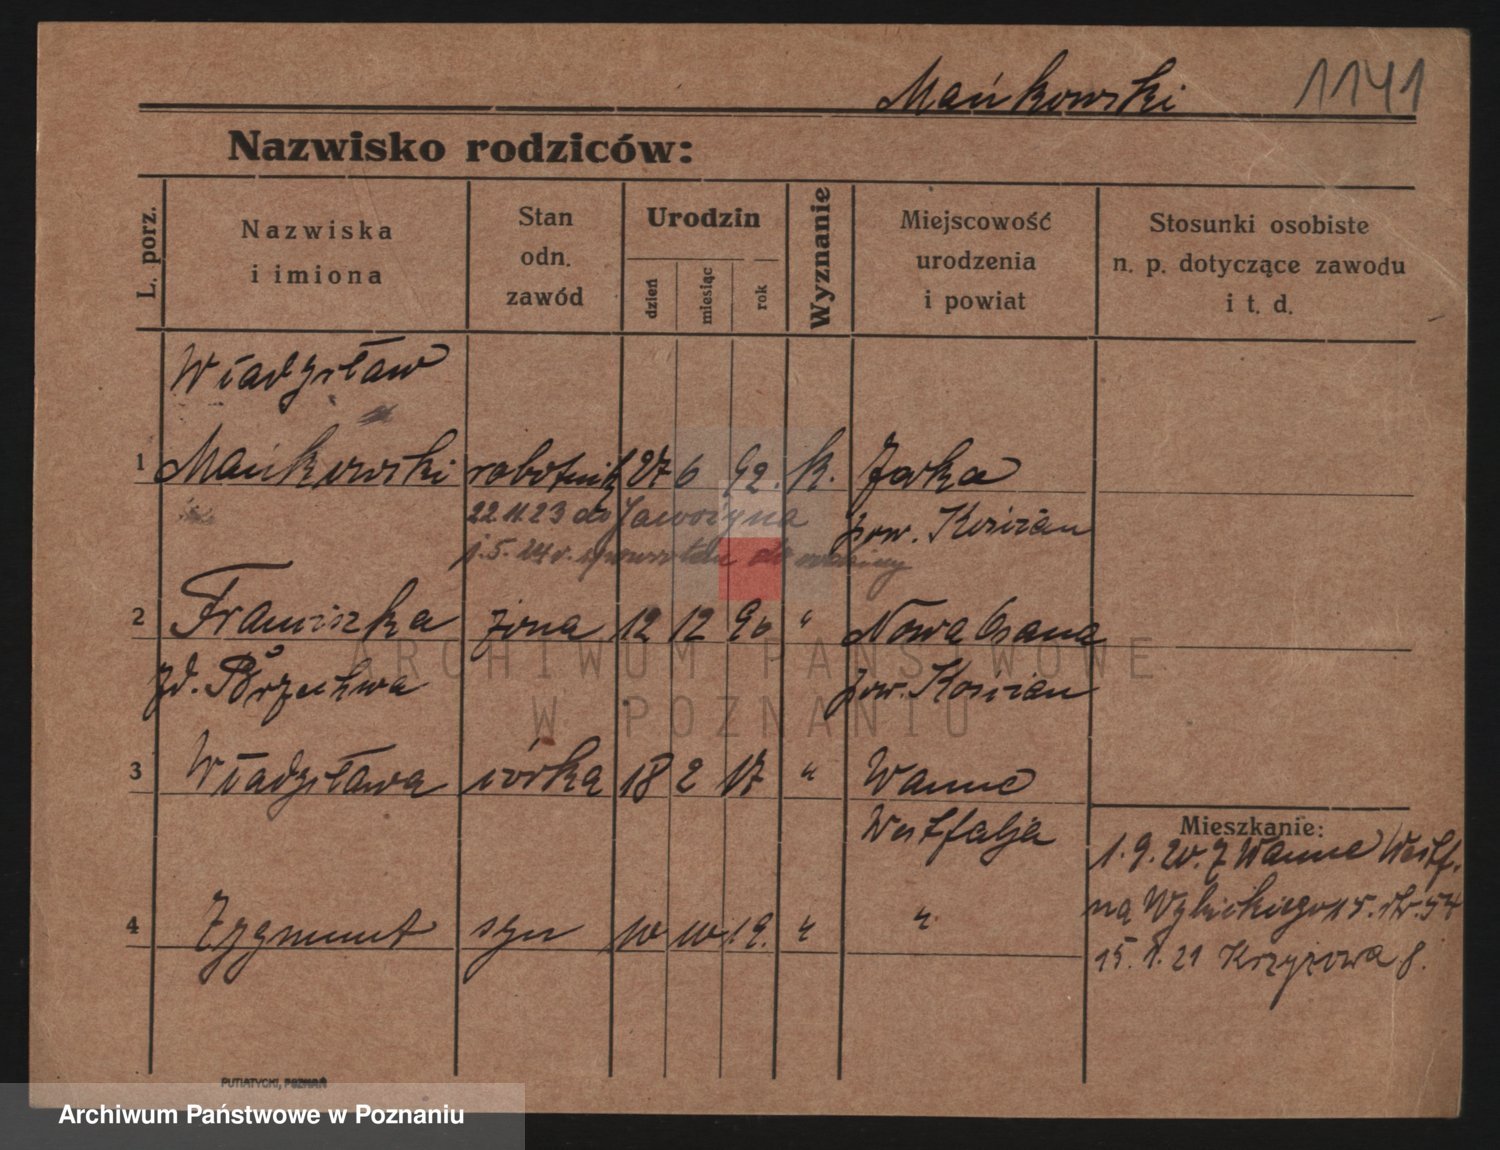 Mańkowski 1141
Nazwisko rodziców:
L. porz.
Nazwiska i imiona
Stan odn. zawód
Urodzin
dzień
miesiąc
rok
Wyznanie
Miejscowość urodzenia i powiat
Stosunki osobiste n. p. dotyczące zawodu i t. d.
Władysław
1 Mańkowski robotnik 27 6 92. k. Jarka
22 11 23 do Jaworzyna pow. Kościan
1.5.24 r. spowrotem do
2 Franciszka żona 12 12 90 "
pow. Kościan
zd. Brzechwa
3 Władysława córka 18 2 17 " Wanne
Westfalja
Mieszkanie:
1.9.20. z Wanne Westf.
na Wybickiego 15.
4 Zygmunt syn 10 10 19. " "
15.1.21 Krzyżowa 8.
ARCHIWUM PAŃSTWOWE
W POZNANIU
PUTIATYCKI, POZNAŃ
Archiwum Państwowe w Poznaniu